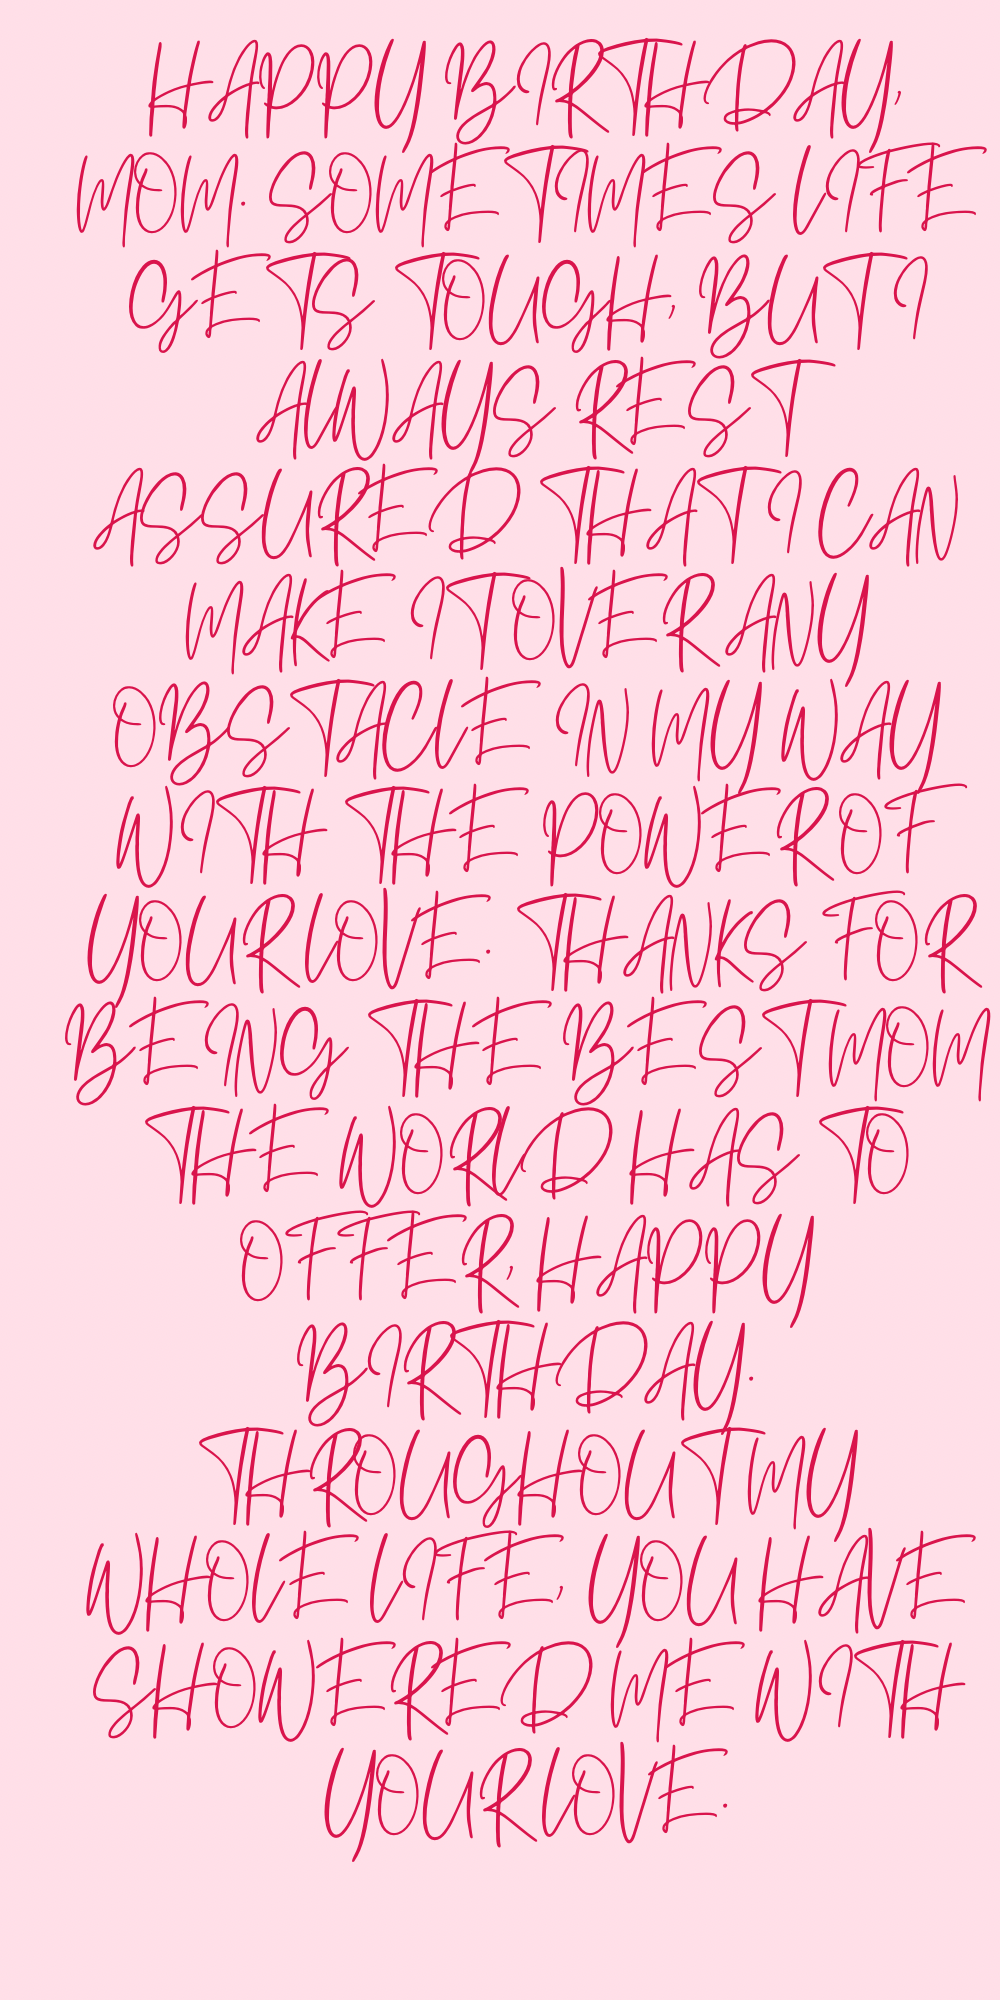 HAPPY BIRTHDAY,
MOM. SOMETIMES LIFE
GETS TOUGH, BUT I
ALWAYS REST
ASSURED THAT I CAN
MAKE IT OVER ANY
OBSTACLE IN MY WAY
WITH THE POWER OF
YOUR LOVE. THANKS FOR
BEING THE BEST MOM
THE WORLD HAS TO
OFFER, HAPPY
BIRTHDAY.
THROUGHOUT MY
WHOLE LIFE, YOU HAVE
SHOWERED ME WITH
YOUR LOVE.